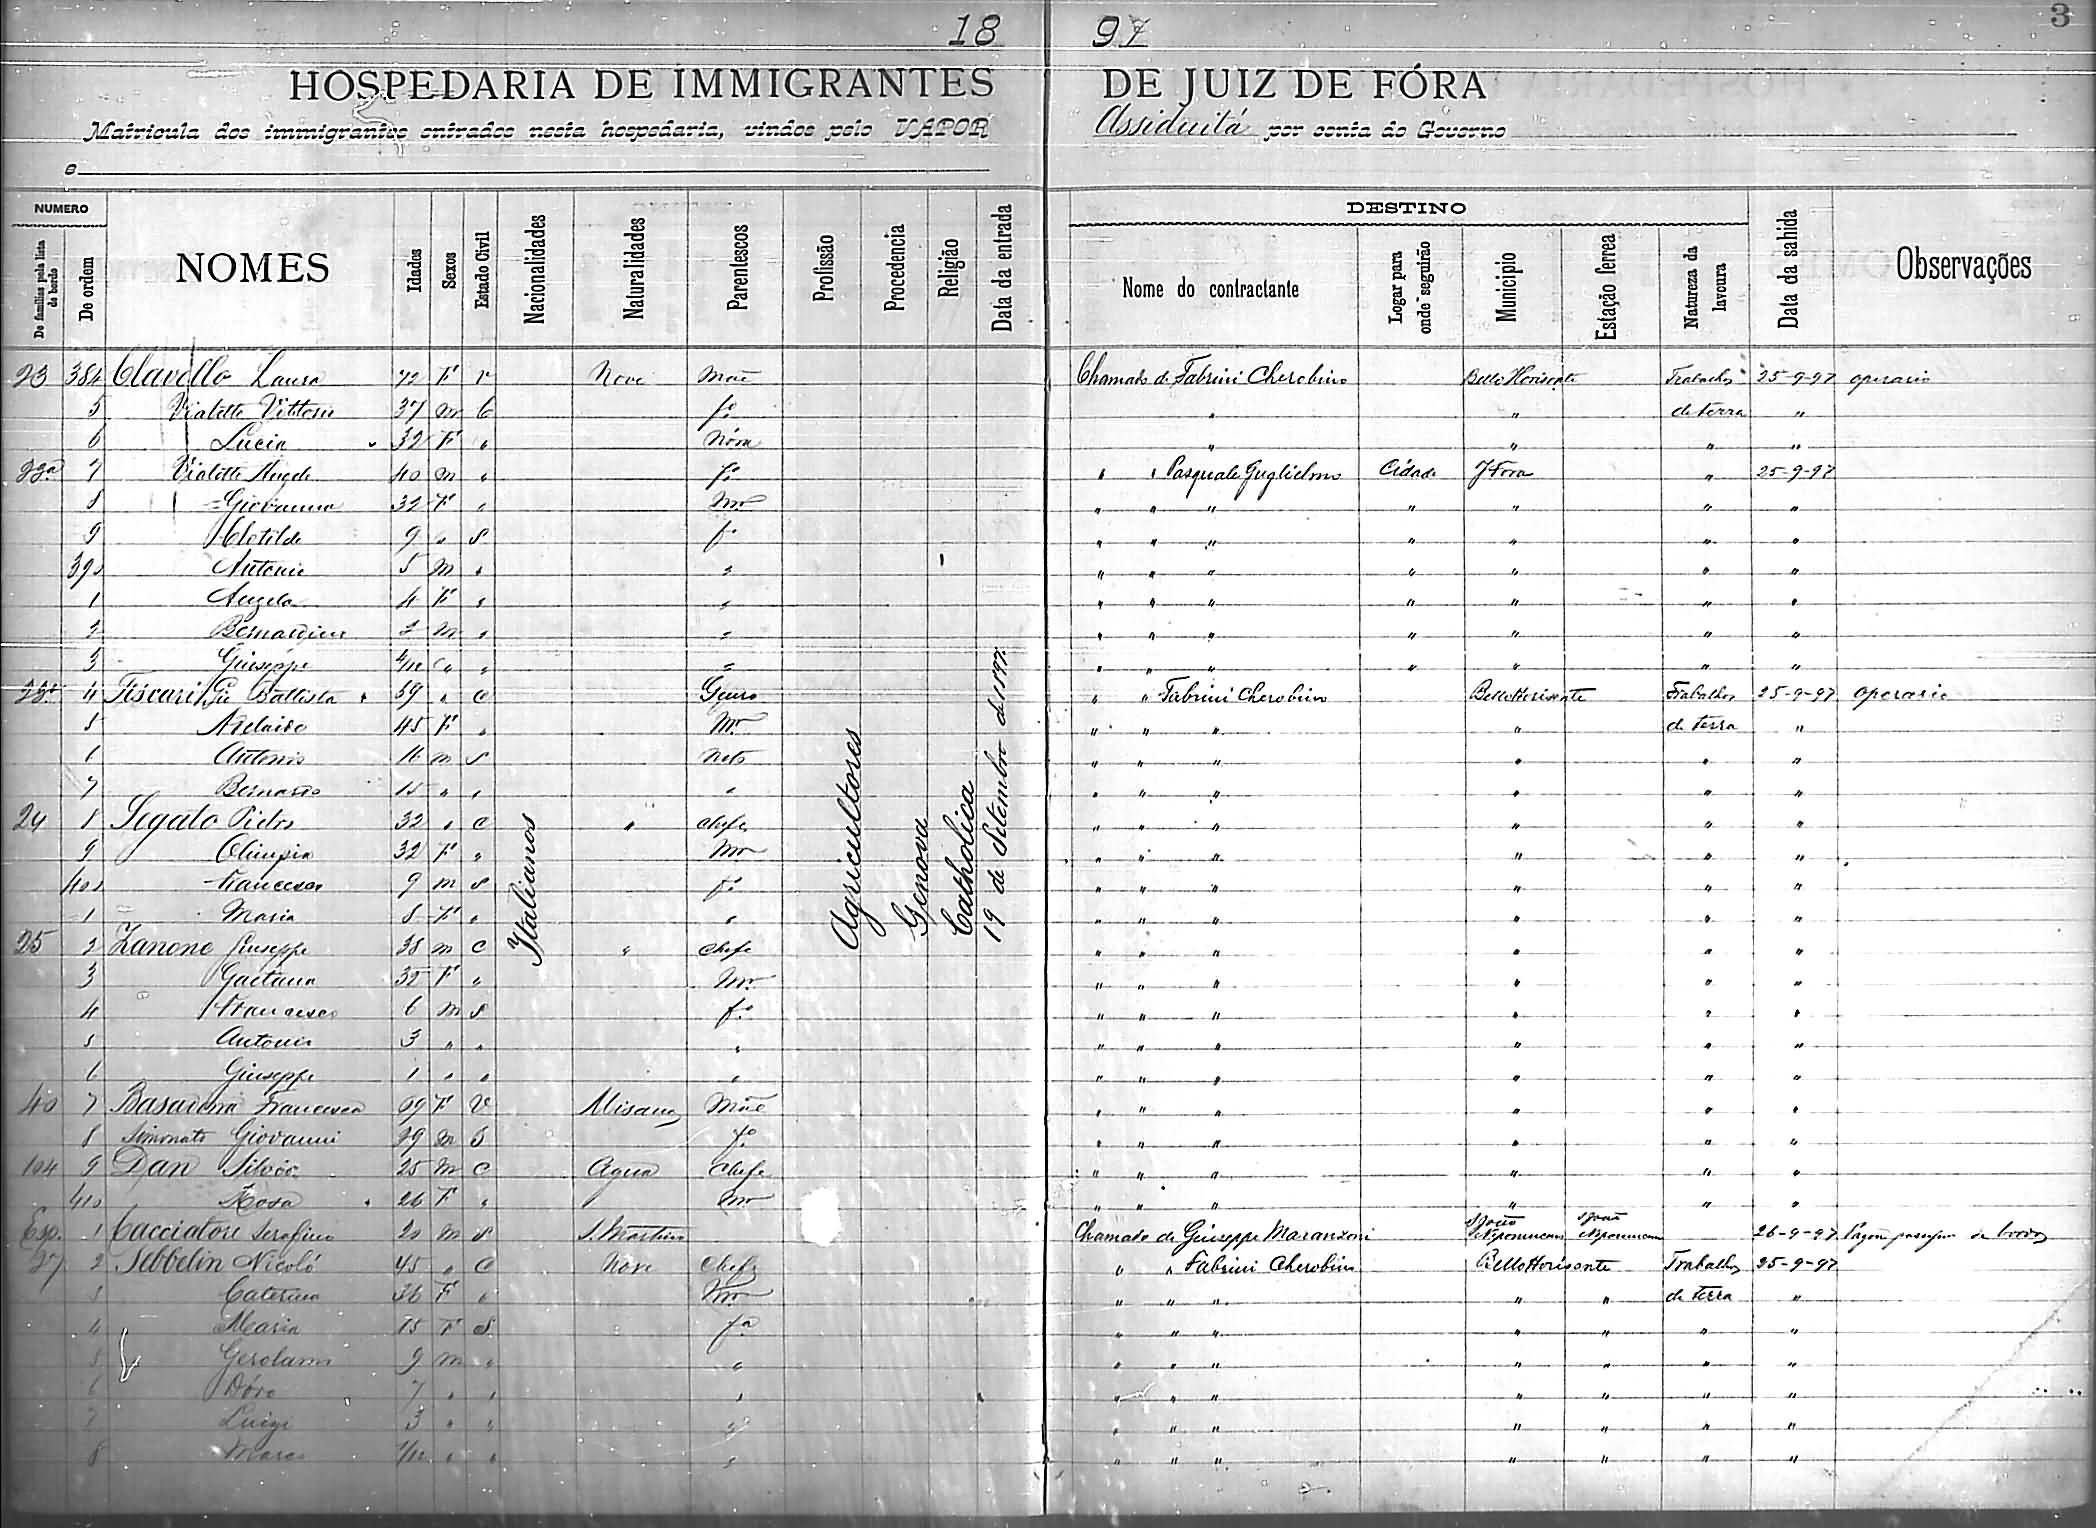 18 97
3
HOSPEDARIA DE IMMIGRANTES DE JUIZ DE FÓRA
Matricula dos immigrantes entrados nesta hospedaria, vindos pelo VAPOR Assiduitá por conta do Governo
e
NUMERO DESTINO
De familias pela lista de bordo De ordem NOMES Idades Sexos Estado Civil Nacionalidades Naturalidades Parentescos Profissão Procedencia Religião Data da entrada Nome do contractante Logar para onde seguirão Municipio Estação ferrea Natureza da lavoura Data da sahida Observações
23 384 Clavello Laura 72 F V Nove Mãe Chamado de Fabrini Cherobino Bello Horisonte Trabalhos 25-9-97 operario
5 Vialetto Vittorio 37 m C fo " " de terra "
6 Lucia 32 F " Nóra " " " "
23a 7 Vialetto Angelo 40 m " fo " " Pasquale Guglielmo Cidade J Fora " 25-9-97
8 Giovanna 32 F " Mer " " " " " " "
9 Clotilde 9 " S fa " " " " " " "
390 Antonio 5 m " " " " " " " " "
1 Angela 4 F " " " " " " " " "
2 Bernardino 2 m " " " " " " " " "
3 Giuseppe 4/12 " " " " " " " " " "
4 Fiscari Gio Battista 59 " C Genro " " Fabrini Cherobino Bello Horisonte Trabalhos 25-9-97 operario
5 Adelaide 45 F " Mer " " " " de terra "
6 Antonio 16 m S Neto " " " " " "
7 Bernardo 15 " " " " " " " " "
24 8 Segato Pietro 32 " C " chefe " " " " " "
9 Olimpia 32 F " Mer " " " " " "
400 Francesco 9 m S fo " " " " " "
1 Maria 8 F " " " " " " " "
25 2 Zanone Giuseppe 38 m C " chefe " " " " " "
3 Gaetana 32 F " Mer " " " " " "
4 Francesco 6 m S fo " " " " " "
5 Antonio 3 " " " " " " " " "
6 Giuseppe 1 " " " " " " " " "
Italianos
Agricultores
Genova
Catholica
19 de Setembro de 1897
40 7 Francesca F V Mãe " " " " " "
8 Simonato Giovanni 29 m S fo " " " " " "
104 9 Dan Silvio 25 m C Agua Chefe " " " " " "
410 Rosa 26 F " Mer " " " " " "
Esp. 1 Cacciatore Serafino 20 m S S. Martino Chamado de Giuseppe Maranzoni S João Nepomuceno S João Nepomuceno 26-9-97
27 2 Sebbelin Nicoló 45 " C Nove Chefe " " Fabrini Cherobino Bello Horisonte Trabalhos 25-9-97
3 Caterina 36 F " Mer " " " " " de terra "
4 Maria 15 F S fa " " " " " " "
5 Gerolamo 9 m " " " " " " " " "
6 7 " " " " " " " " " "
7 Luigi 3 " " " " " " " " " "
8 Marco " " " " " " " " " "